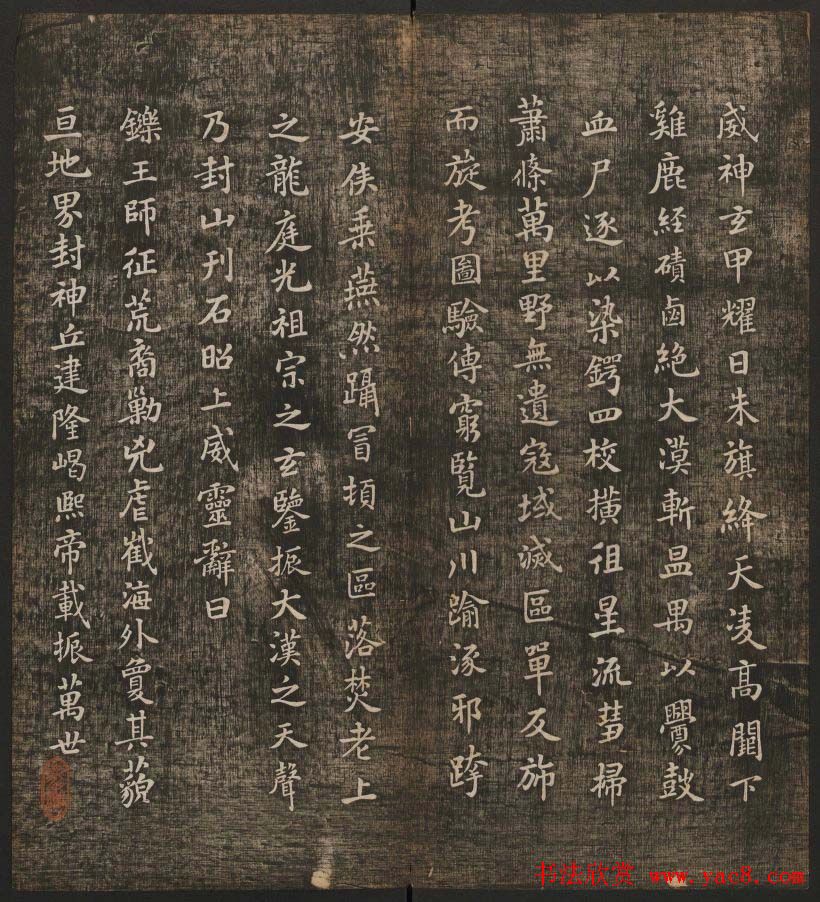 威神玄甲耀日朱旗絳天凌高闕下
雞鹿經磧鹵絕大漠斬昷禺以釁鼓
血尸逐以染鍔四校橫徂星流彗掃
蕭條萬里野無遺寇域滅區單反旆
而旋考圖驗傳窮覽山川踰涿邪跨
安侯乗燕然躡冒頓之區落焚老上
之龍庭光祖宗之玄鑒振大漢之天聲
乃封山刊石昭上威靈辭曰
鑠王師征荒裔勦兇虐截海外敻其藐
亘地界封神丘建隆嵑熙帝載振萬世
书法欣赏 www.yac8.com